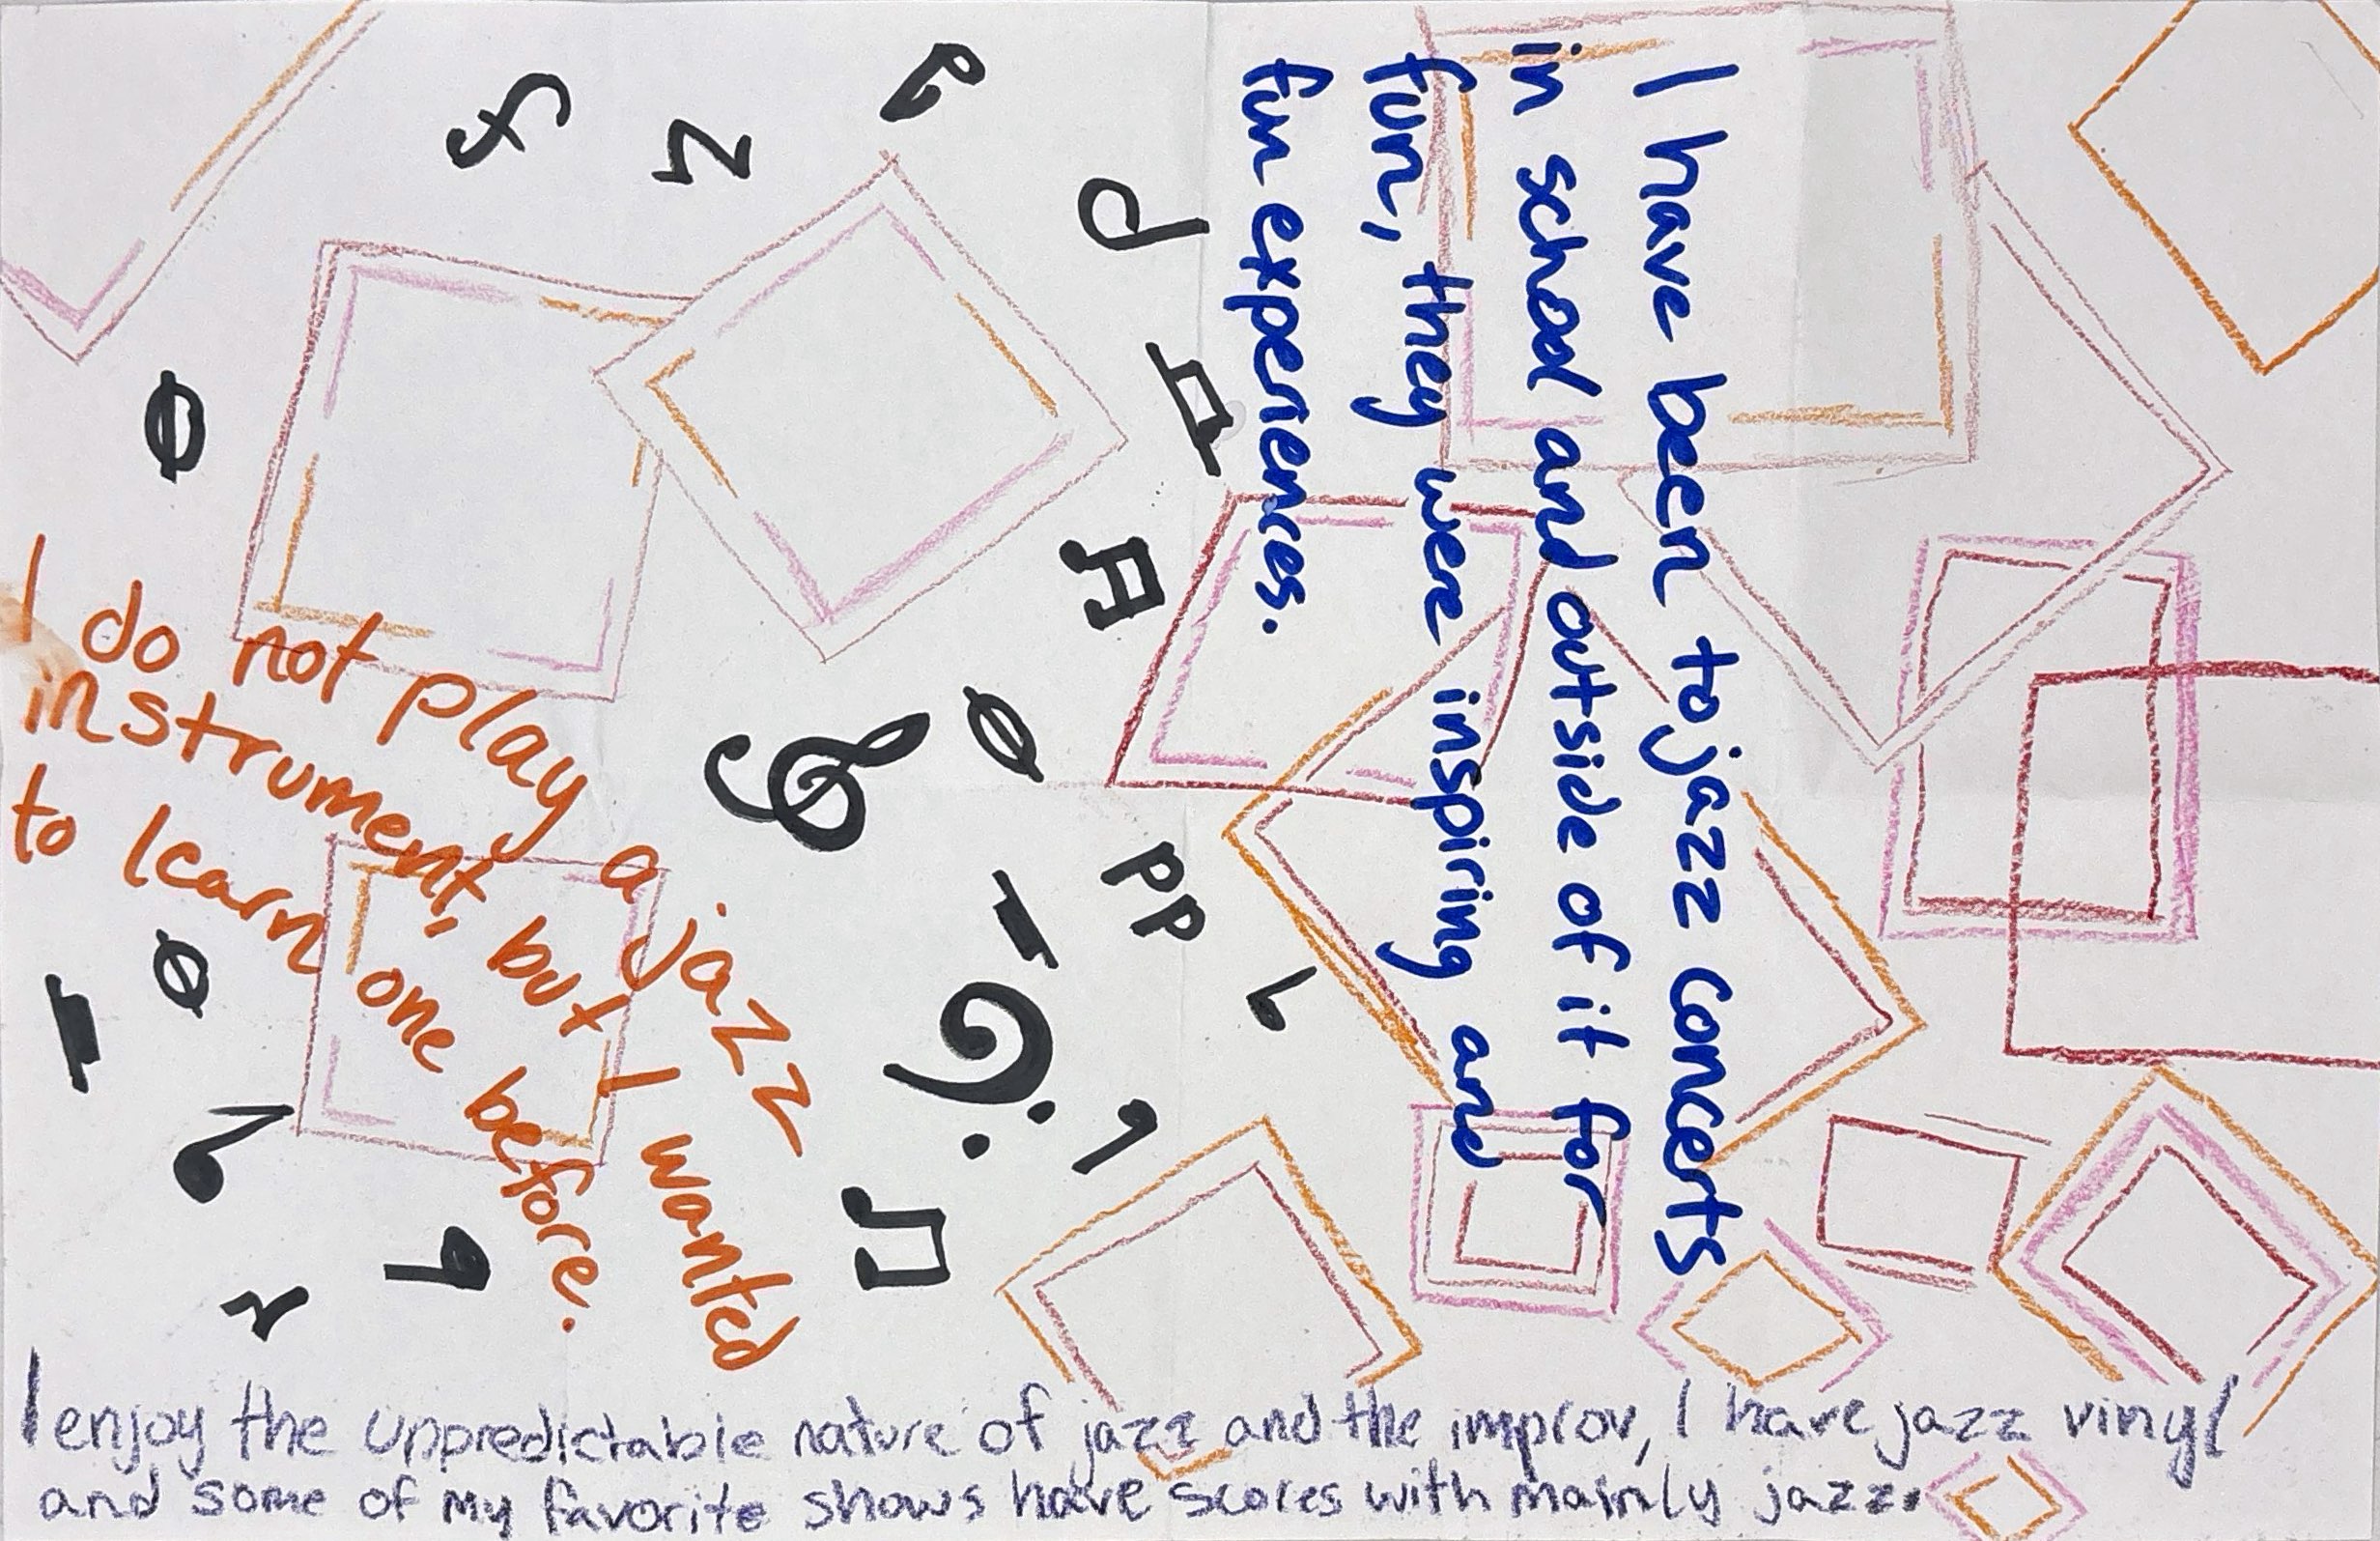 I have been to jazz concerts
in school and outside of it for
fun, they were inspiring and
fun experiences.
I do not play a jazz
instrument, but I wanted
to learn one before.
pp
I enjoy the unpredictable nature of jazz and the improv, I have jazz vinyl
and some of my favorite shows have scores with mainly jazz.